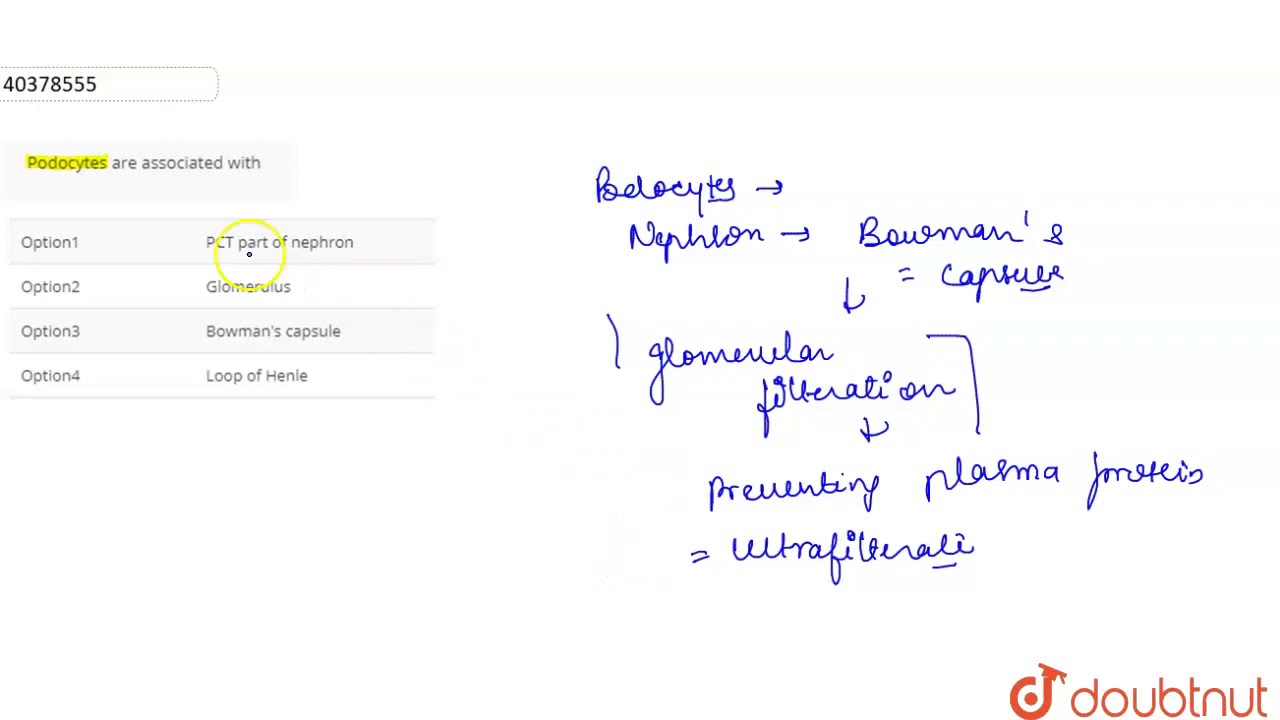 40378555
Podocytes are associated with
Option1 PCT part of nephron
Option2 Glomerulus
Option3 Bowman's capsule
Option4 Loop of Henle
Podocytes →
Nephron → Bowman's
= capsule
↓
glomerular
filteration
↓
Preventing plasma protein
= Ultrafilterati
doubtnut